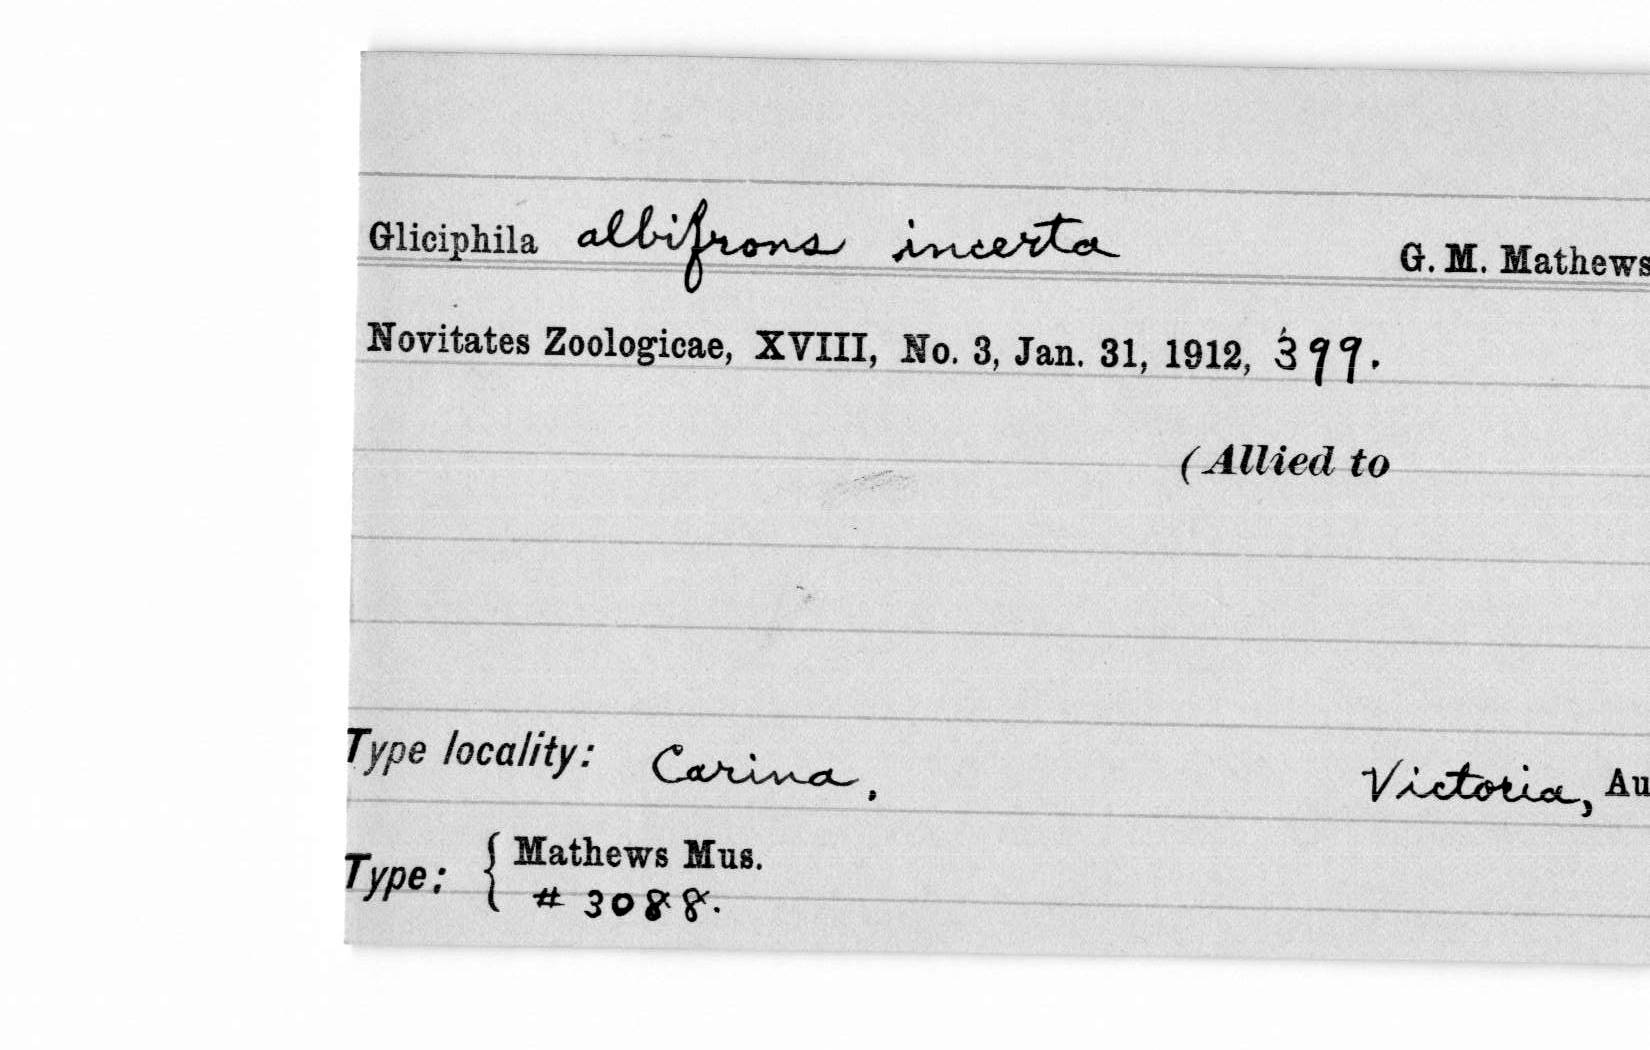 Gliciphila albifrons incerta G. M. Mathews
Novitates Zoologicae, XVIII, No. 3, Jan. 31, 1912, 399.
(Allied to
Type locality: Carina, Victoria, Au
Type: { Mathews Mus.
# 3088.